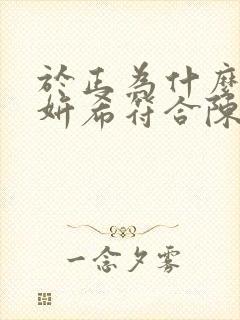 於正為什麼
妍希符合陳
一念夕雾